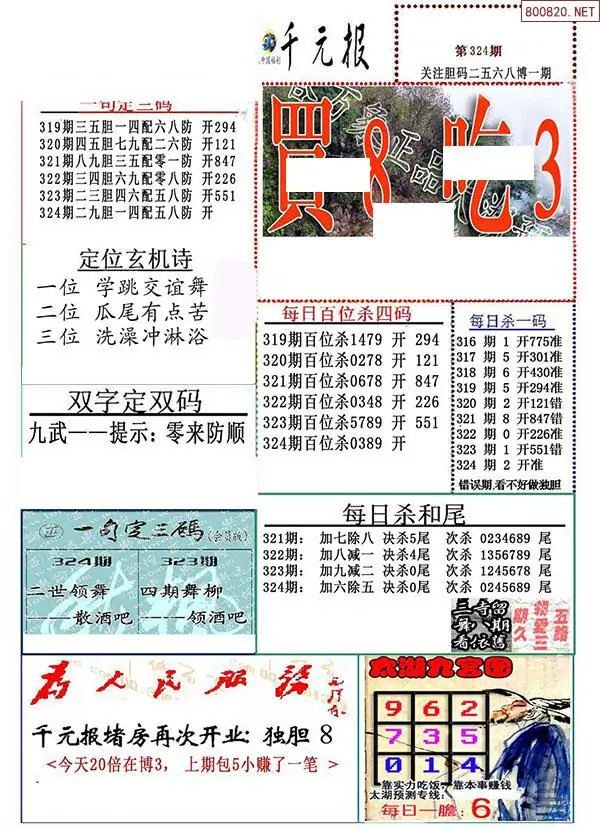 800820.NET
千元报
中国福利
第324期
关注胆码二五六八博一期
一句定三码
319期三五胆一四配六八防 开294
320期四五胆七九配二六防 开121
321期八九胆三五配零一防 开847
322期三四胆六九配零八防 开226
323期二三胆四六配五八防 开551
324期二九胆一四配五八防 开
買8吃3
定位玄机诗
一位 学跳交谊舞
二位 瓜尾有点苦
三位 洗澡冲淋浴
每日百位杀四码
319期百位杀1479 开 294
320期百位杀0278 开 121
321期百位杀0678 开 847
322期百位杀0348 开 226
323期百位杀5789 开 551
324期百位杀0389 开
每日杀一码
316 期 1 开775准
317 期 5 开301准
318 期 6 开430准
319 期 5 开294准
320 期 2 开121错
321 期 8 开847错
322 期 0 开226准
323 期 1 开551错
324 期 2 开准
错误期,看不好做独胆
双字定双码
九武——提示:零来防顺
一句定三码(会员版)
324期
二世领舞
——散酒吧
323期
四期舞柳
——领酒吧
每日杀和尾
321期: 加七除八 决杀5尾 次杀 0234689 尾
322期: 加八减一 决杀4尾 次杀 1356789 尾
323期: 加九减二 决杀0尾 次杀 1245678 尾
324期: 加六除五 决杀0尾 次杀 0245689 尾
三奇留
舞八期
看依旧
五路
初爱三
期久
为人民服务
千元报堵房再次开业:独胆 8
<今天20倍在博3, 上期包5小赚了一笔 >
太湖九宫图
9 6 2
7 3 5
0 1 4
靠实力吃饭,靠本事赚钱
太湖预测专线:
每日一膽:6